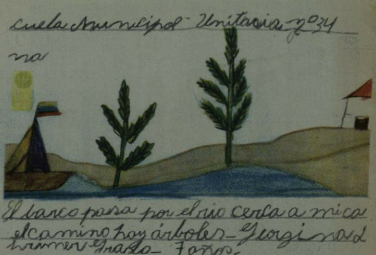 cuela Municipal Unitaria nº 34
na
El barco pasa por el rio cerca a mi ca
el camino hay árboles - Georgina L
primer grado - 7 años.